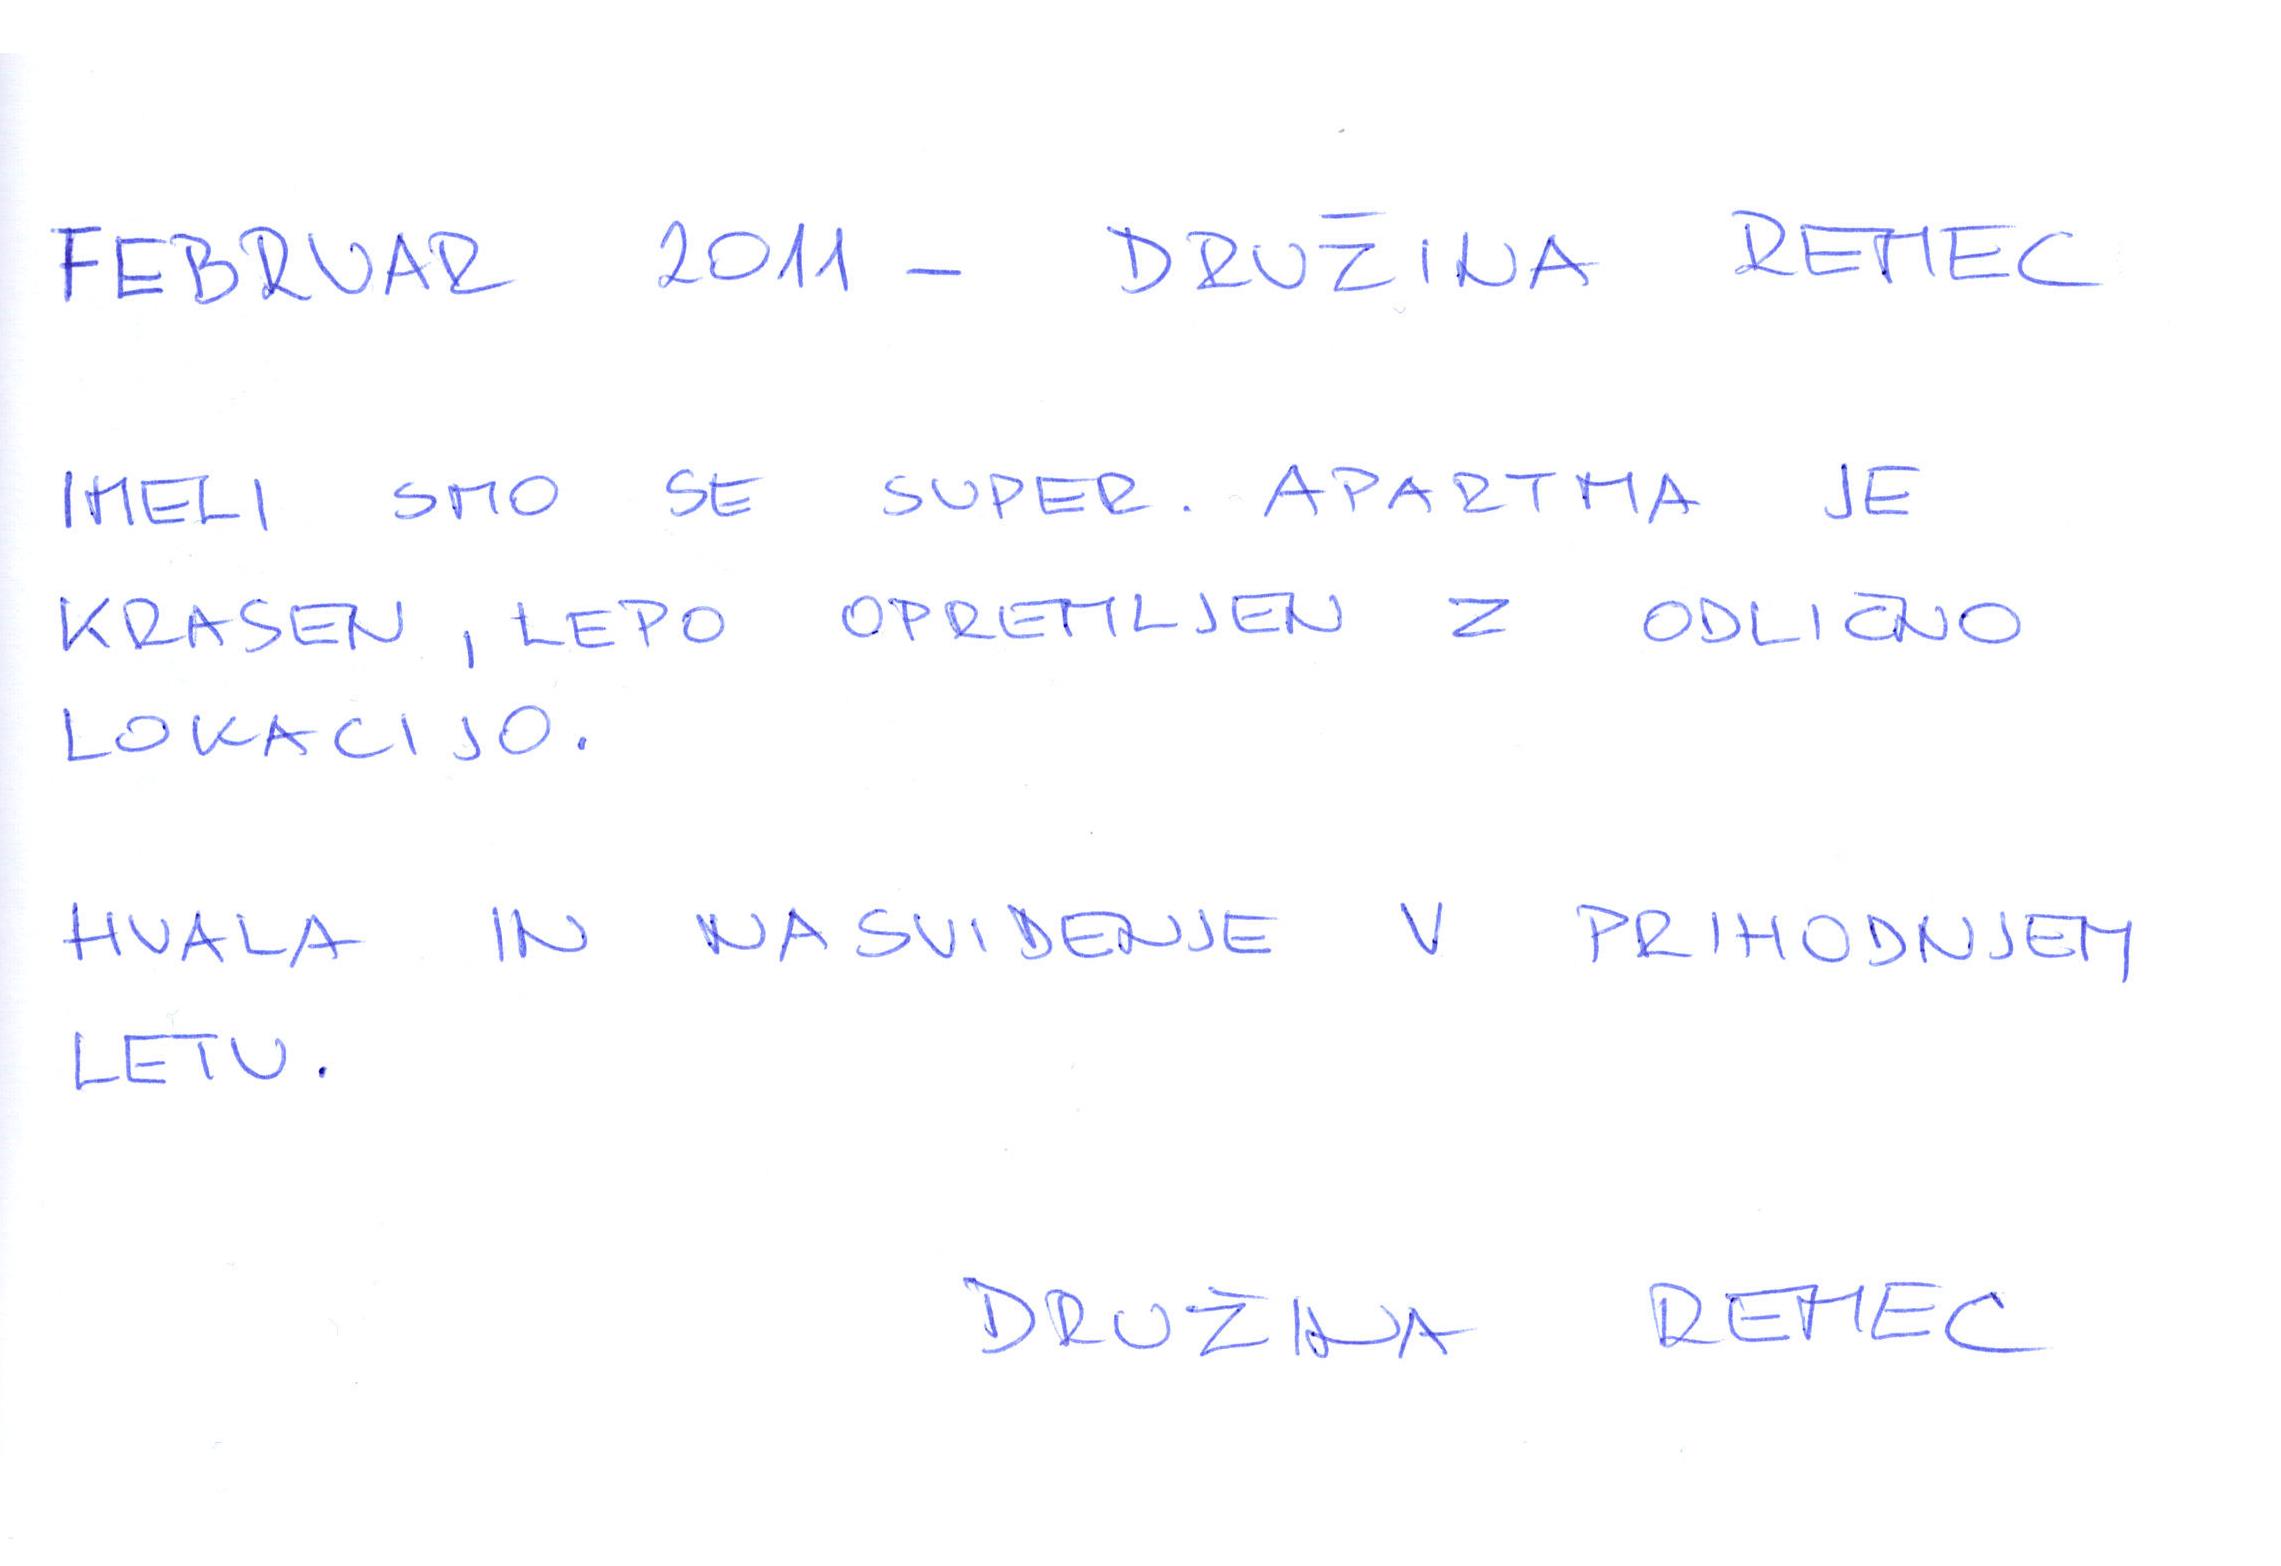 FEBRUAR 2011 - DRUŽINA REMEC
IMELI SMO SE SUPER. APARTMA JE
KRASEN, LEPO OPREMLJEN Z ODLIČNO
LOKACIJO.
HVALA IN NASVIDENJE V PRIHODNJEM
LETU.
DRUŽINA REMEC